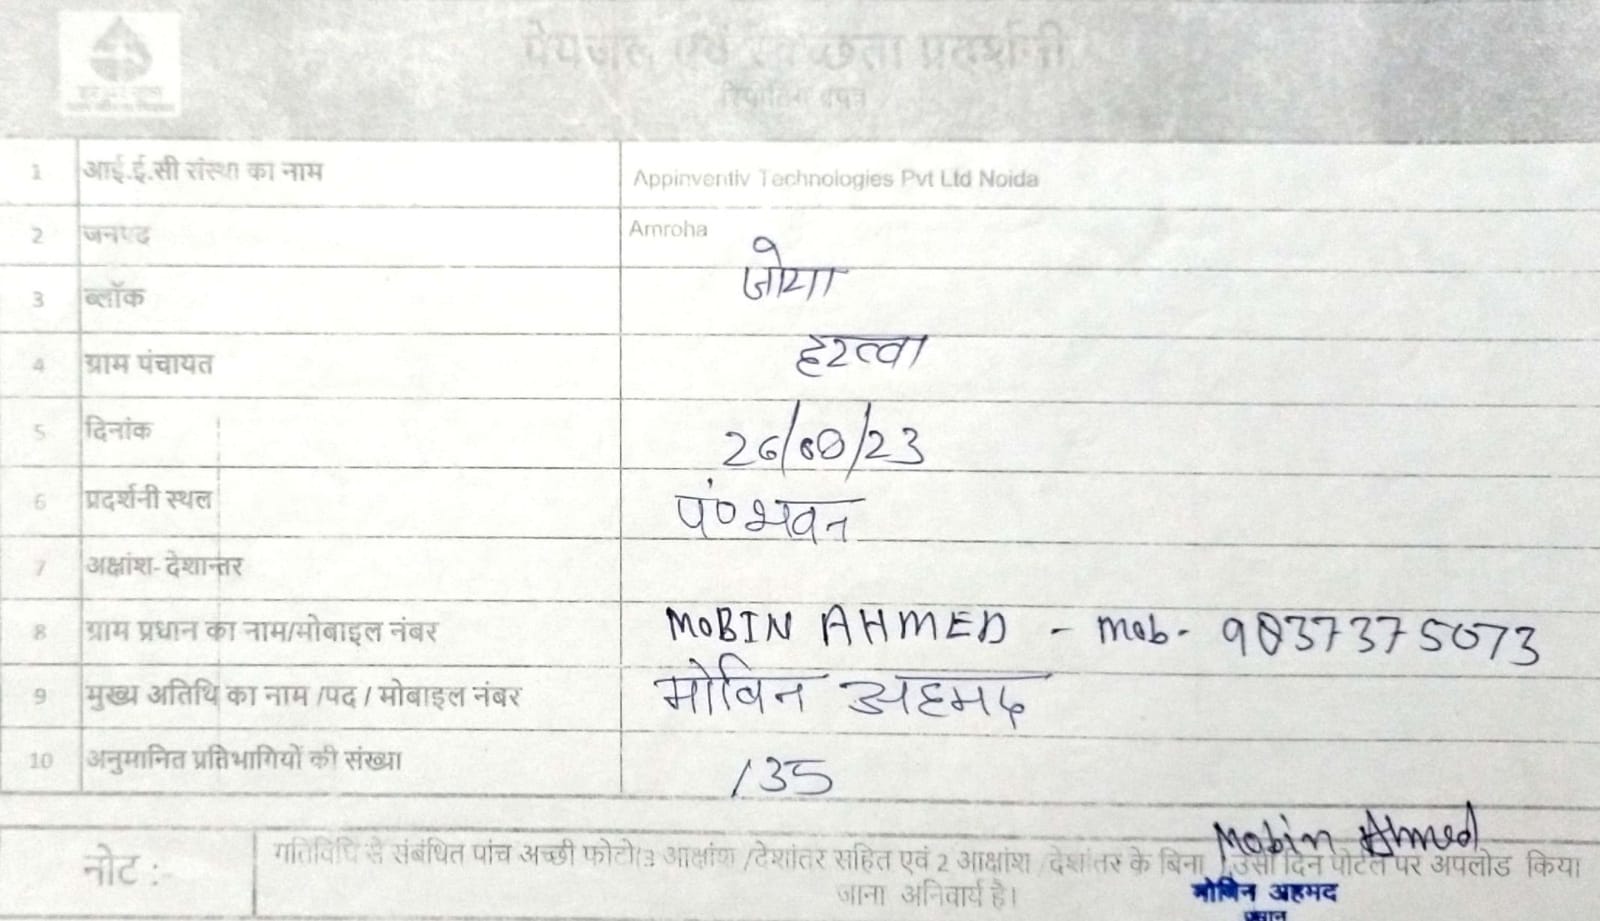 पेयजल एवं स्वच्छता प्रदर्शनी
रिपोर्टिंग प्रपत्र
1 आई.ई.सी संस्था का नाम Appinventiv Technologies Pvt Ltd Noida
2 जनपद Amroha
3 ब्लॉक जोया
4 ग्राम पंचायत
5 दिनांक 26/08/23
6 प्रदर्शनी स्थल पं० भवन
7 अक्षांश- देशान्तर
8 ग्राम प्रधान का नाम/मोबाइल नंबर MOBIN AHMED - Mob- 9837375073
9 मुख्य अतिथि का नाम /पद / मोबाइल नंबर मोविन अहमद
10 अनुमानित प्रतिभागियों की संख्या 135
Mobin Ahmed
नोट :- गतिविधि से संबंधित पांच अच्छी फोटो(3 आक्षांश /देशांतर सहित एवं 2 आक्षांश /देशांतर के बिना ) उसी दिन पोर्टल पर अपलोड किया
जाना अनिवार्य है।
मोबिन अहमद
प्रधान